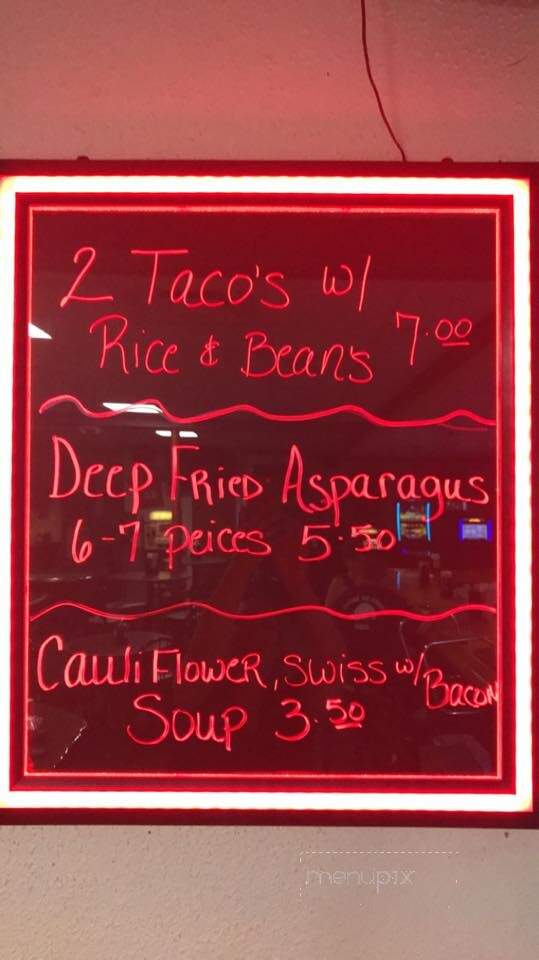 2 Taco's w/
Rice & Beans 7.00
Deep Fried Asparagus
6-7 peices 5.50
Cauliflower, Swiss w/ Bacon
Soup 3.50
menupix